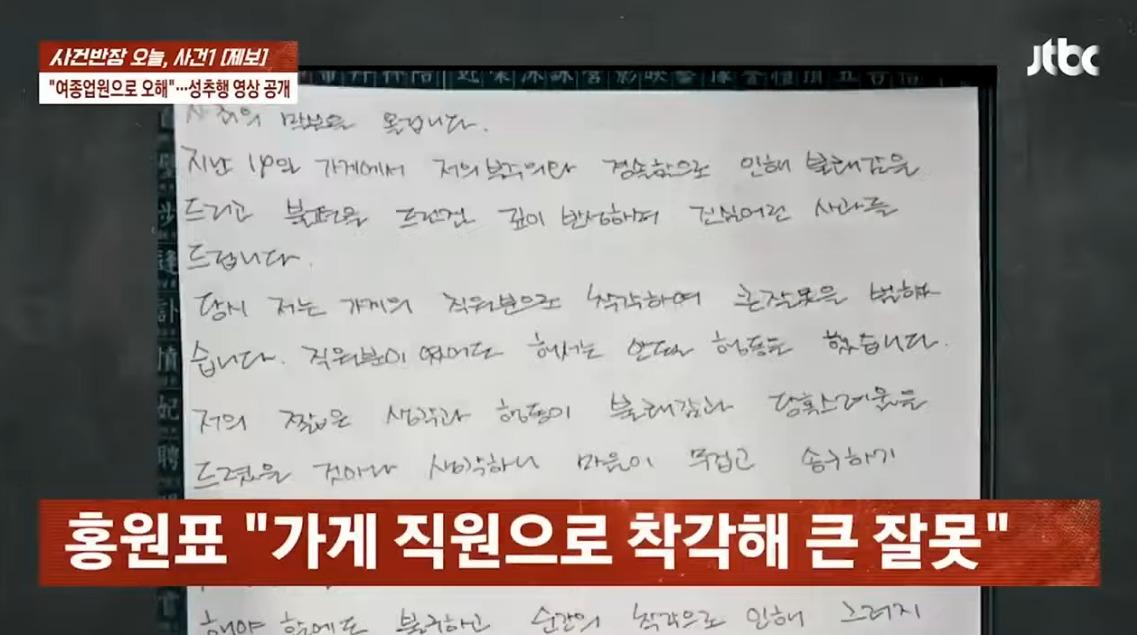 사건반장 오늘, 사건1 [제보]
"여종업원으로 오해"…성추행 영상 공개
jtbc
사죄의 말씀을 올립니다.
지난 19일 가게에서 저의 부주의와 경솔함으로 인해 불쾌감을
드리고 불편을 드린건 깊이 반성하며 진심어린 사과를
드립니다.
당시 저는 가게의 직원분으로 착각하여 큰잘못을 범했
습니다. 직원분이 였어도 해서는 안되는 행동을 했습니다.
저의 짧은 생각과 행동이 불쾌감과 당혹스러움을
드렸을 것이라 생각하니 마음이 무겁고 송구하기
홍원표 "가게 직원으로 착각해 큰 잘못"
해야 함에도 불구하고 순간의 착각으로 인해 그러지